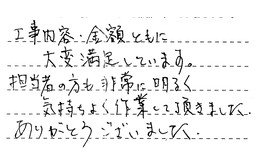 工事内容・金額ともに
大変満足しています。
担当者の方も非常に明るく
気持ちよく作業して頂きました.
ありがとうございました.